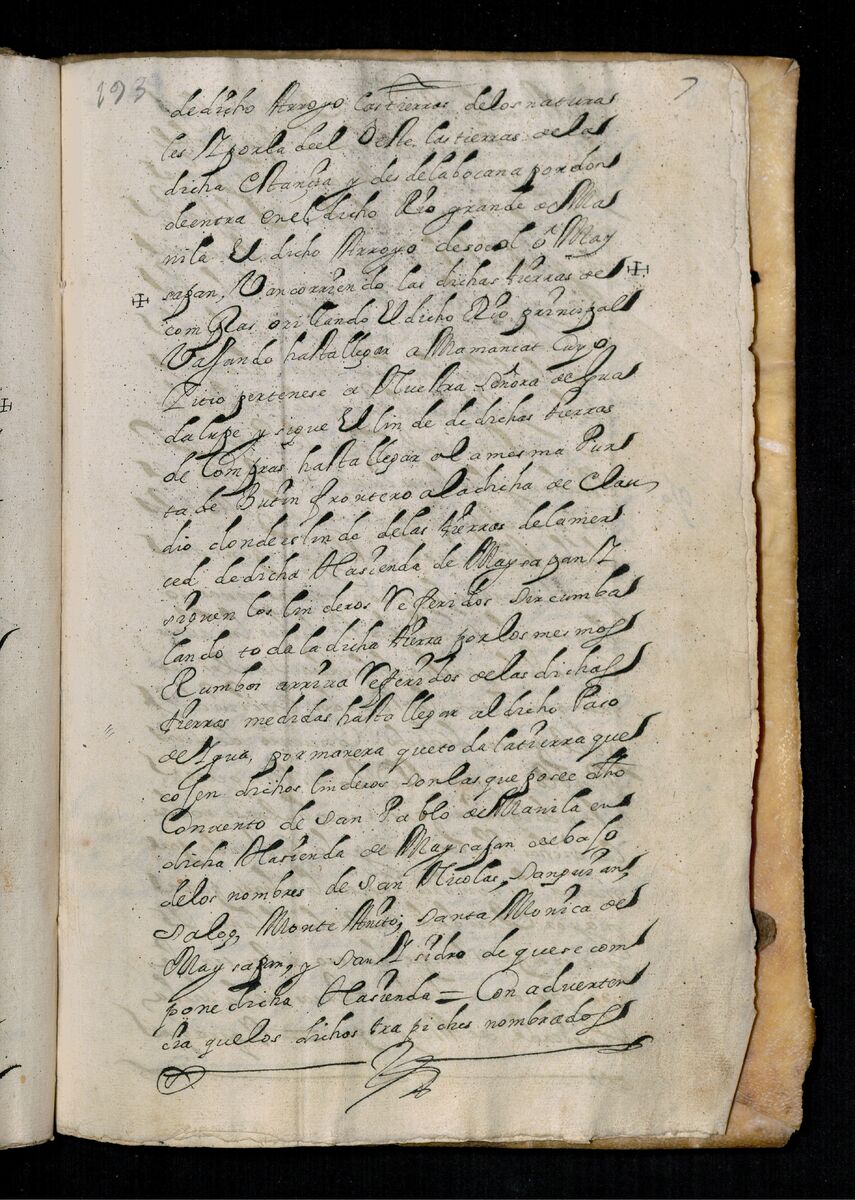 193
7
de dicho Arroyo las tierras de los natura
les Y por la deel Oeste las tierras de la
dicha Estançia y desde la bocana por don
de entra en el dicho Rio grande de Ma
nila El dicho Arroyo de socol o May
sapan, Van corriendo las dichas tierras de
compras orillando El dicho Rio prinsipal
Vajando hasta llegar a Mamancat Cuyo
sitio pertenese a Nuestra señora de Gua
dalupe y sigue El linde de dichas tierras
de Compras hasta llegar a la mesma Pun
ta de Butin frontero a la dicha de Clau
dio donde es linde de las tierras de la mer
ced de dicha Hasienda de Maysapan Y
siguen los linderos Referidos sircumba
lando toda la dicha tierra por los mesmos
Rumbos arriva Referidos de las dichas
tierras medidas hasta llegar al dicho Paso
de Agua, por manera que toda la tierra que
cojen dichos linderos son las que posee dho
Convento de San Pablo de Manila en
dicha Hasienda de Maysapan debajo
de los nombres de San Nicolas, Sanguian,
Salog, Monte Benito; Santa Monica de
Maysapan, y San Ysidro de que se com
pone dicha Hasienda = Con adverten
cia que los dichos trapiches nombrados